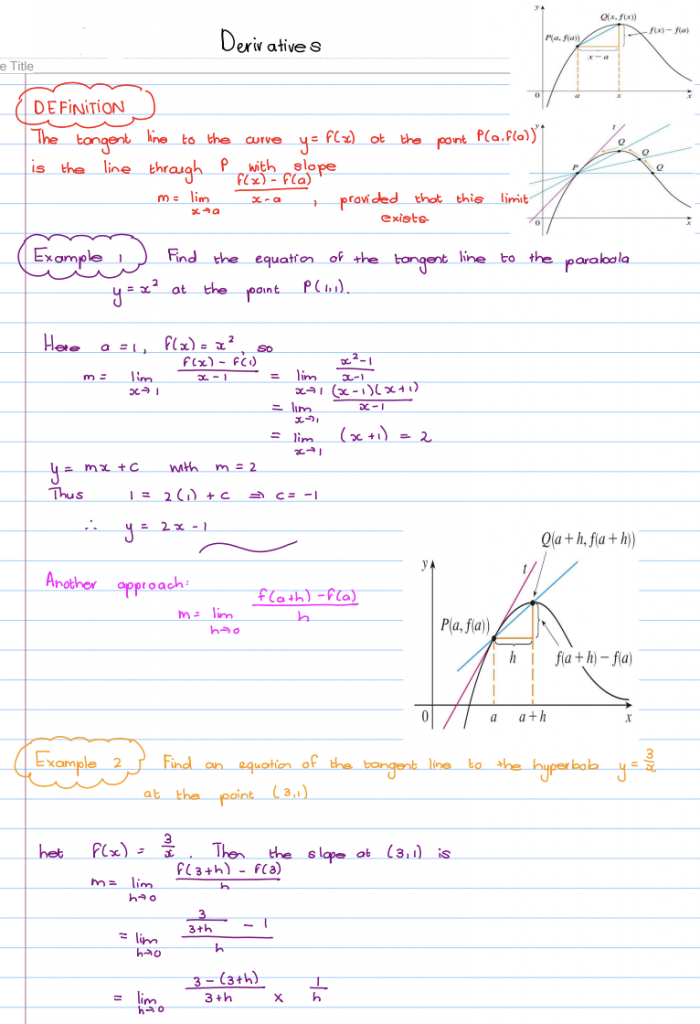 Derivatives
e Title
y
Q(x, f(x))
P(a, f(a))
f(x) − f(a)
x − a
0 a x x
DEFINITION
The tangent line to the curve y = f(x) at the point P(a.f(a))
is the line through P with slope
m = lim x→a (f(x) - f(a))/(x - a) , provided that this limit
exists.
y
t
Q
Q
P
Q
0 x
Example 1 Find the equation of the tangent line to the parabola
y = x² at the point P(1,1).
Here a = 1, f(x) = x², so
m = lim x→1 (f(x) - f(1))/(x - 1) = lim x→1 (x² - 1)/(x - 1)
= lim x→1 ((x - 1)(x + 1))/(x - 1)
= lim x→1 (x + 1) = 2
y = mx + c with m = 2
Thus 1 = 2(1) + c ⇒ c = -1
∴ y = 2x - 1
Another approach:
m = lim h→0 (f(a+h) - f(a))/h
Q(a + h, f(a + h))
y
t
P(a, f(a))
h
f(a + h) − f(a)
0 a a + h x
Example 2 Find an equation of the tangent line to the hyperbola y = 3/x
at the point (3,1)
Let f(x) = 3/x . Then the slope at (3,1) is
m = lim h→0 (f(3+h) - f(3))/h
= lim h→0 (3/(3+h) - 1)/h
= lim h→0 (3 - (3+h))/(3+h) × 1/h